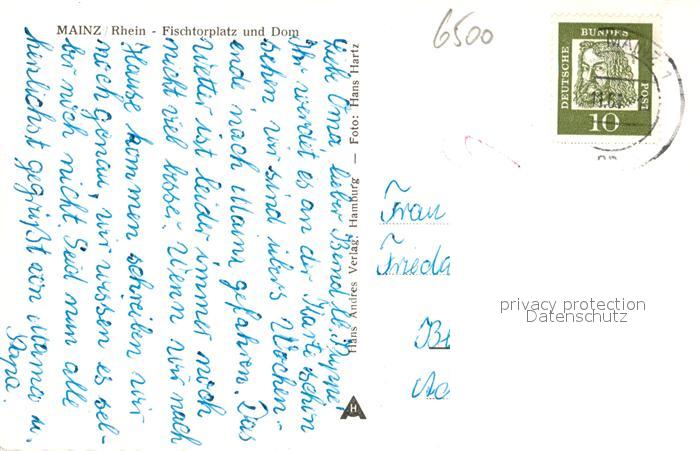 MAINZ/Rhein - Fischtorplatz und Dom
6500
DEUTSCHE BUNDESPOST
10
MAINZ 1
Hans Andres Verlag, Hamburg — Foto: Hans Hartz
Liebe Oma, lieber Bernd, lb. Puppe,
Ihr werdet es an der Karte schon
sehen wir sind übers Wochen-
ende nach Mainz gefahren. Das
Wetter ist leider immer noch
nicht viel besser. Wenn wir nach
Hause kommen schreiben wir
noch genau, wir wissen es sel-
ber noch nicht. Seid nun alle
herzlichst gegrüßt von Mama u.
Papa.
Frau
Frieda
H
privacy protection
Datenschutz